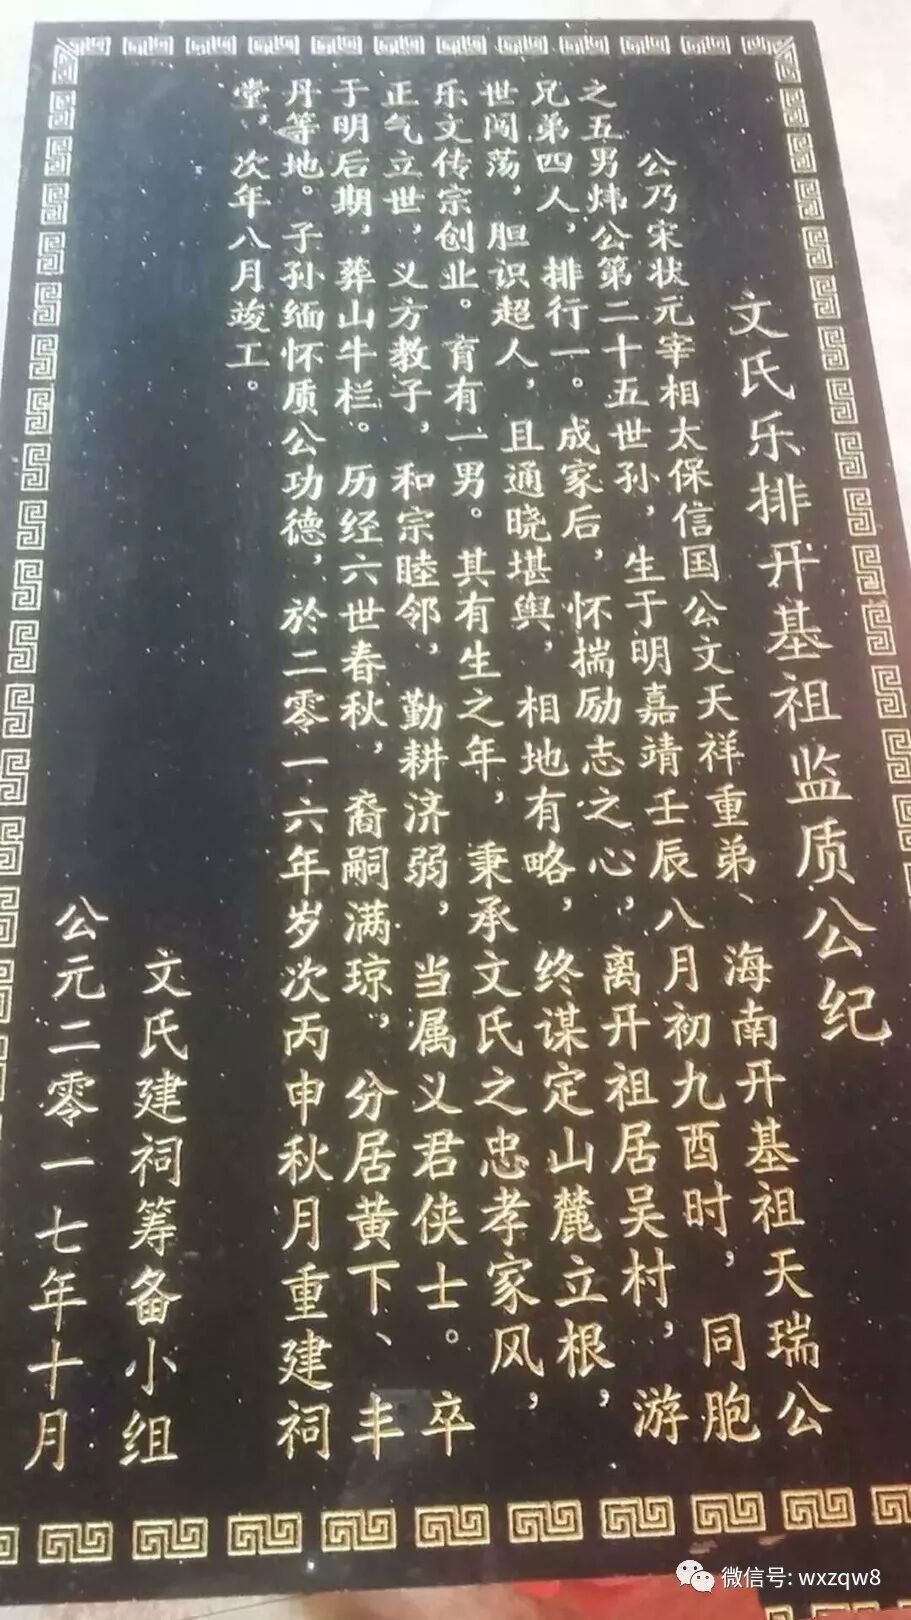 文氏乐排开基祖监质公纪
公乃宋状元宰相太保信国公文天祥重弟、海南开基祖天瑞公
之五男炜公第二十五世孙，生于明嘉靖壬辰八月初九酉时，同胞
兄弟四人，排行一。成家后，怀揣励志之心，离开祖居吴村，游
世闯荡，胆识超人，且通晓堪舆，相地有略，终谋定山麓立根，
乐文传宗创业。育有一男。其有生之年，秉承文氏之忠孝家风，
正气立世，义方教子，和宗睦邻，勤耕济弱，当属义君侠士。卒
于明后期，葬山牛栏。历经六世春秋，裔嗣满琼，分居黄下、丰
丹等地。子孙缅怀质公功德，於二零一六年岁次丙申秋月重建祠
堂，次年八月竣工。
文氏建祠筹备小组
公元二零一七年十月
微信号: wxzqw8